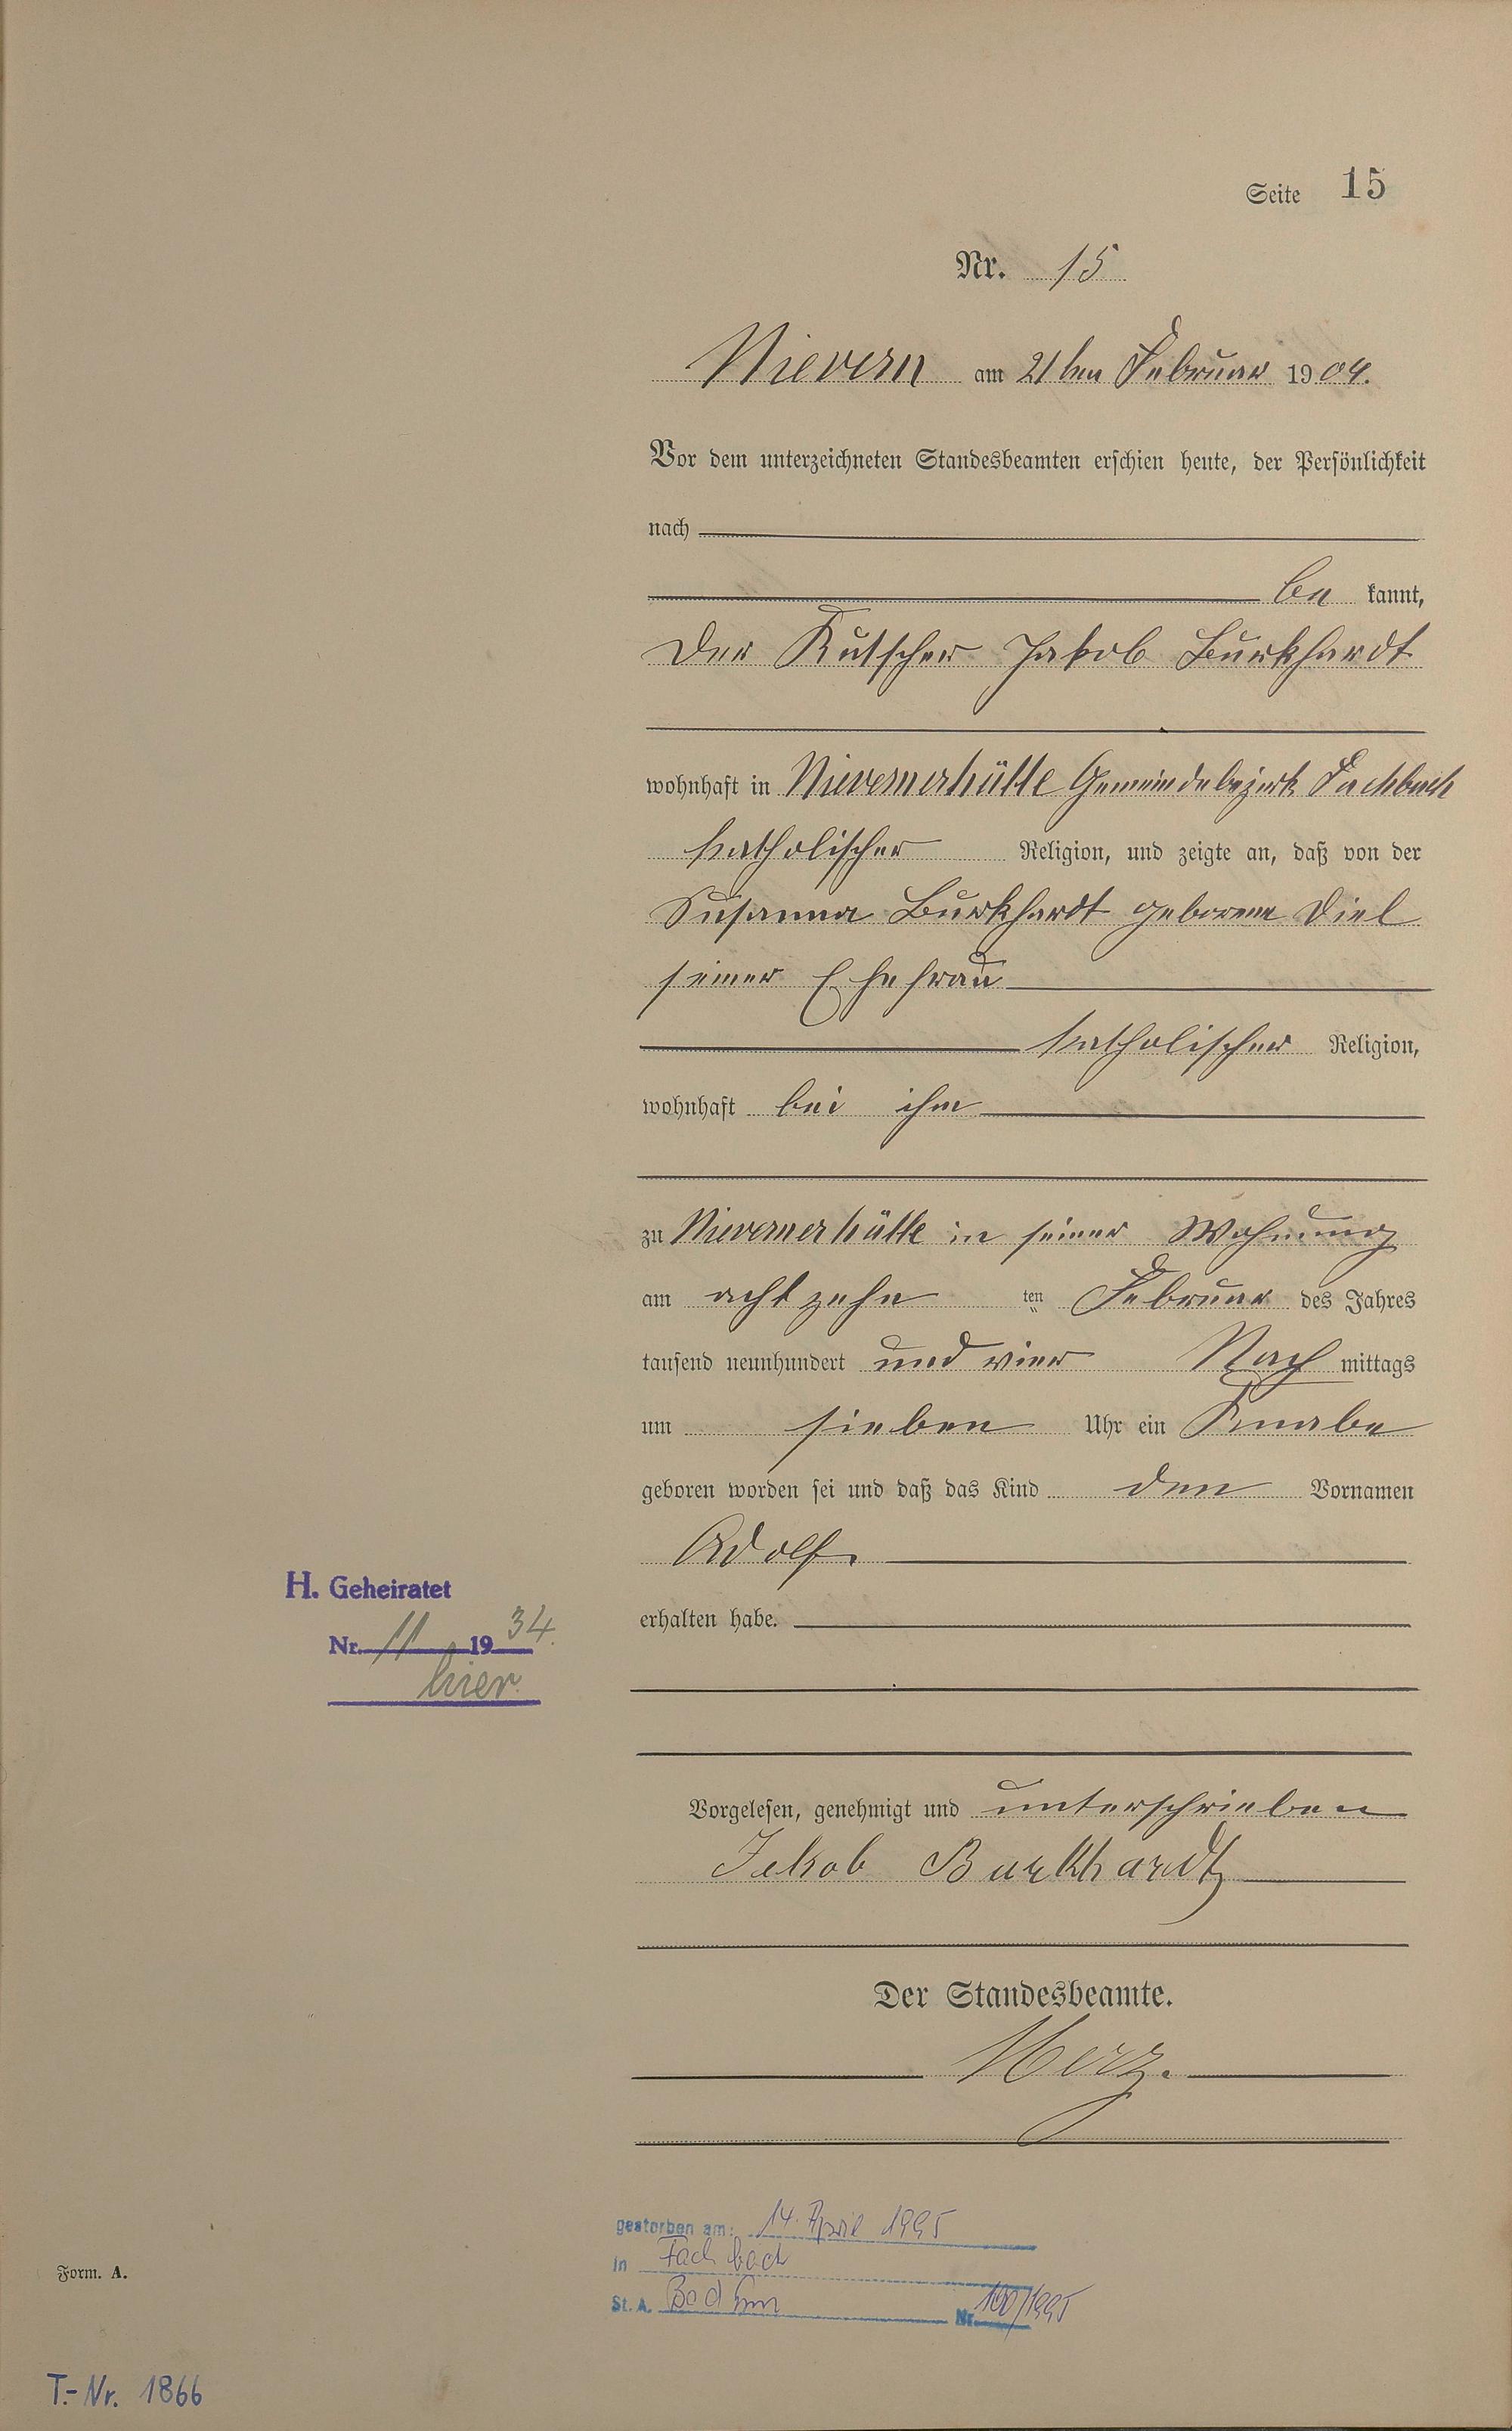 Seite 15
Nr. 15
Nievern am 21ten Februar 1904.
Vor dem unterzeichneten Standesbeamten erschien heute, der Persönlichkeit
nach
be kannt,
der Kutscher Jakob Burkhardt
wohnhaft in Nievernerhütte Gemeindebezirk Fachbach
katholischer Religion, und zeigte an, daß von der
Susanna Burkhardt geborene Diel
seiner Ehefrau
katholischer Religion,
wohnhaft bei ihm
zu Nievernerhütte in seiner Wohnung
am achtzehn ten Februar des Jahres
tausend neunhundert und vier Nach mittags
um sieben Uhr ein Knabe
geboren worden sei und daß das Kind den Vornamen
Adolf
H. Geheiratet
erhalten habe.
Nr. 11 1934.
hier
Vorgelesen, genehmigt und unterschrieben
Jakob Burkhardt
Der Standesbeamte.
Merz.
gestorben am: 14. April 1995
in Fachbach
Form. A.
St. A. Bad Ems Nr. 100/1995
T.-Nr. 1866